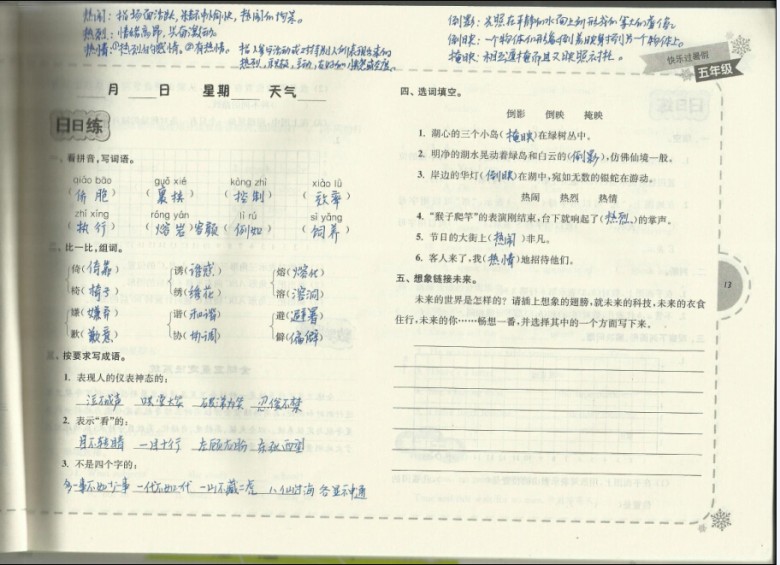 热闹：指场面活跃，
热烈：情绪高昂，兴奋激动。
热情：①热烈的感情，②有热情。
倒影：
倒映：一个物体的形象倒着映射到另一个物体上。
掩映：相互遮掩而又映照衬托。
快乐过暑假
五年级
月 日 星期 天气
日日练
一、看拼音，写词语。
qiáo bāo guǒ xié kòng zhì xiào lǜ
（侨胞）（裹挟）（控制）（效率）
zhí xíng róng yán lì rú sì yǎng
（执行）（熔岩）容颜（例如）（饲养）
二、比一比，组词。
倚（倚靠） 诱（诱惑） 熔（熔化）
椅（椅子） 绣（绣花） 溶（溶洞）
嫌（嫌弃） 谐（和谐） 避（避暑）
歉（歉意） 协（协调） 僻（偏僻）
三、按要求写成语。
1. 表现人的仪表神态的：
泣不成声 哄堂大笑 破涕为笑 忍俊不禁
2. 表示“看”的：
目不转睛 一目十行 左顾右盼 东张西望
3. 不是四个字的：
多一事不如少一事 一代不如一代 一山不藏二虎 八仙过海 各显神通
四、选词填空。
倒影 倒映 掩映
1. 湖心的三个小岛（掩映）在绿树丛中。
2. 明净的湖水晃动着绿岛和白云的（倒影），仿佛仙境一般。
3. 岸边的华灯（倒映）在湖中，宛如无数的银蛇在游动。
热闹 热烈 热情
4. “猴子爬竿”的表演刚结束，台下就响起了（热烈）的掌声。
5. 节日的大街上（热闹）非凡。
6. 客人来了，我（热情）地招待他们。
五、想象链接未来。
未来的世界是怎样的？请插上想象的翅膀，就未来的科技，未来的衣食
住行，未来的你……畅想一番，并选择其中的一个方面写下来。
13